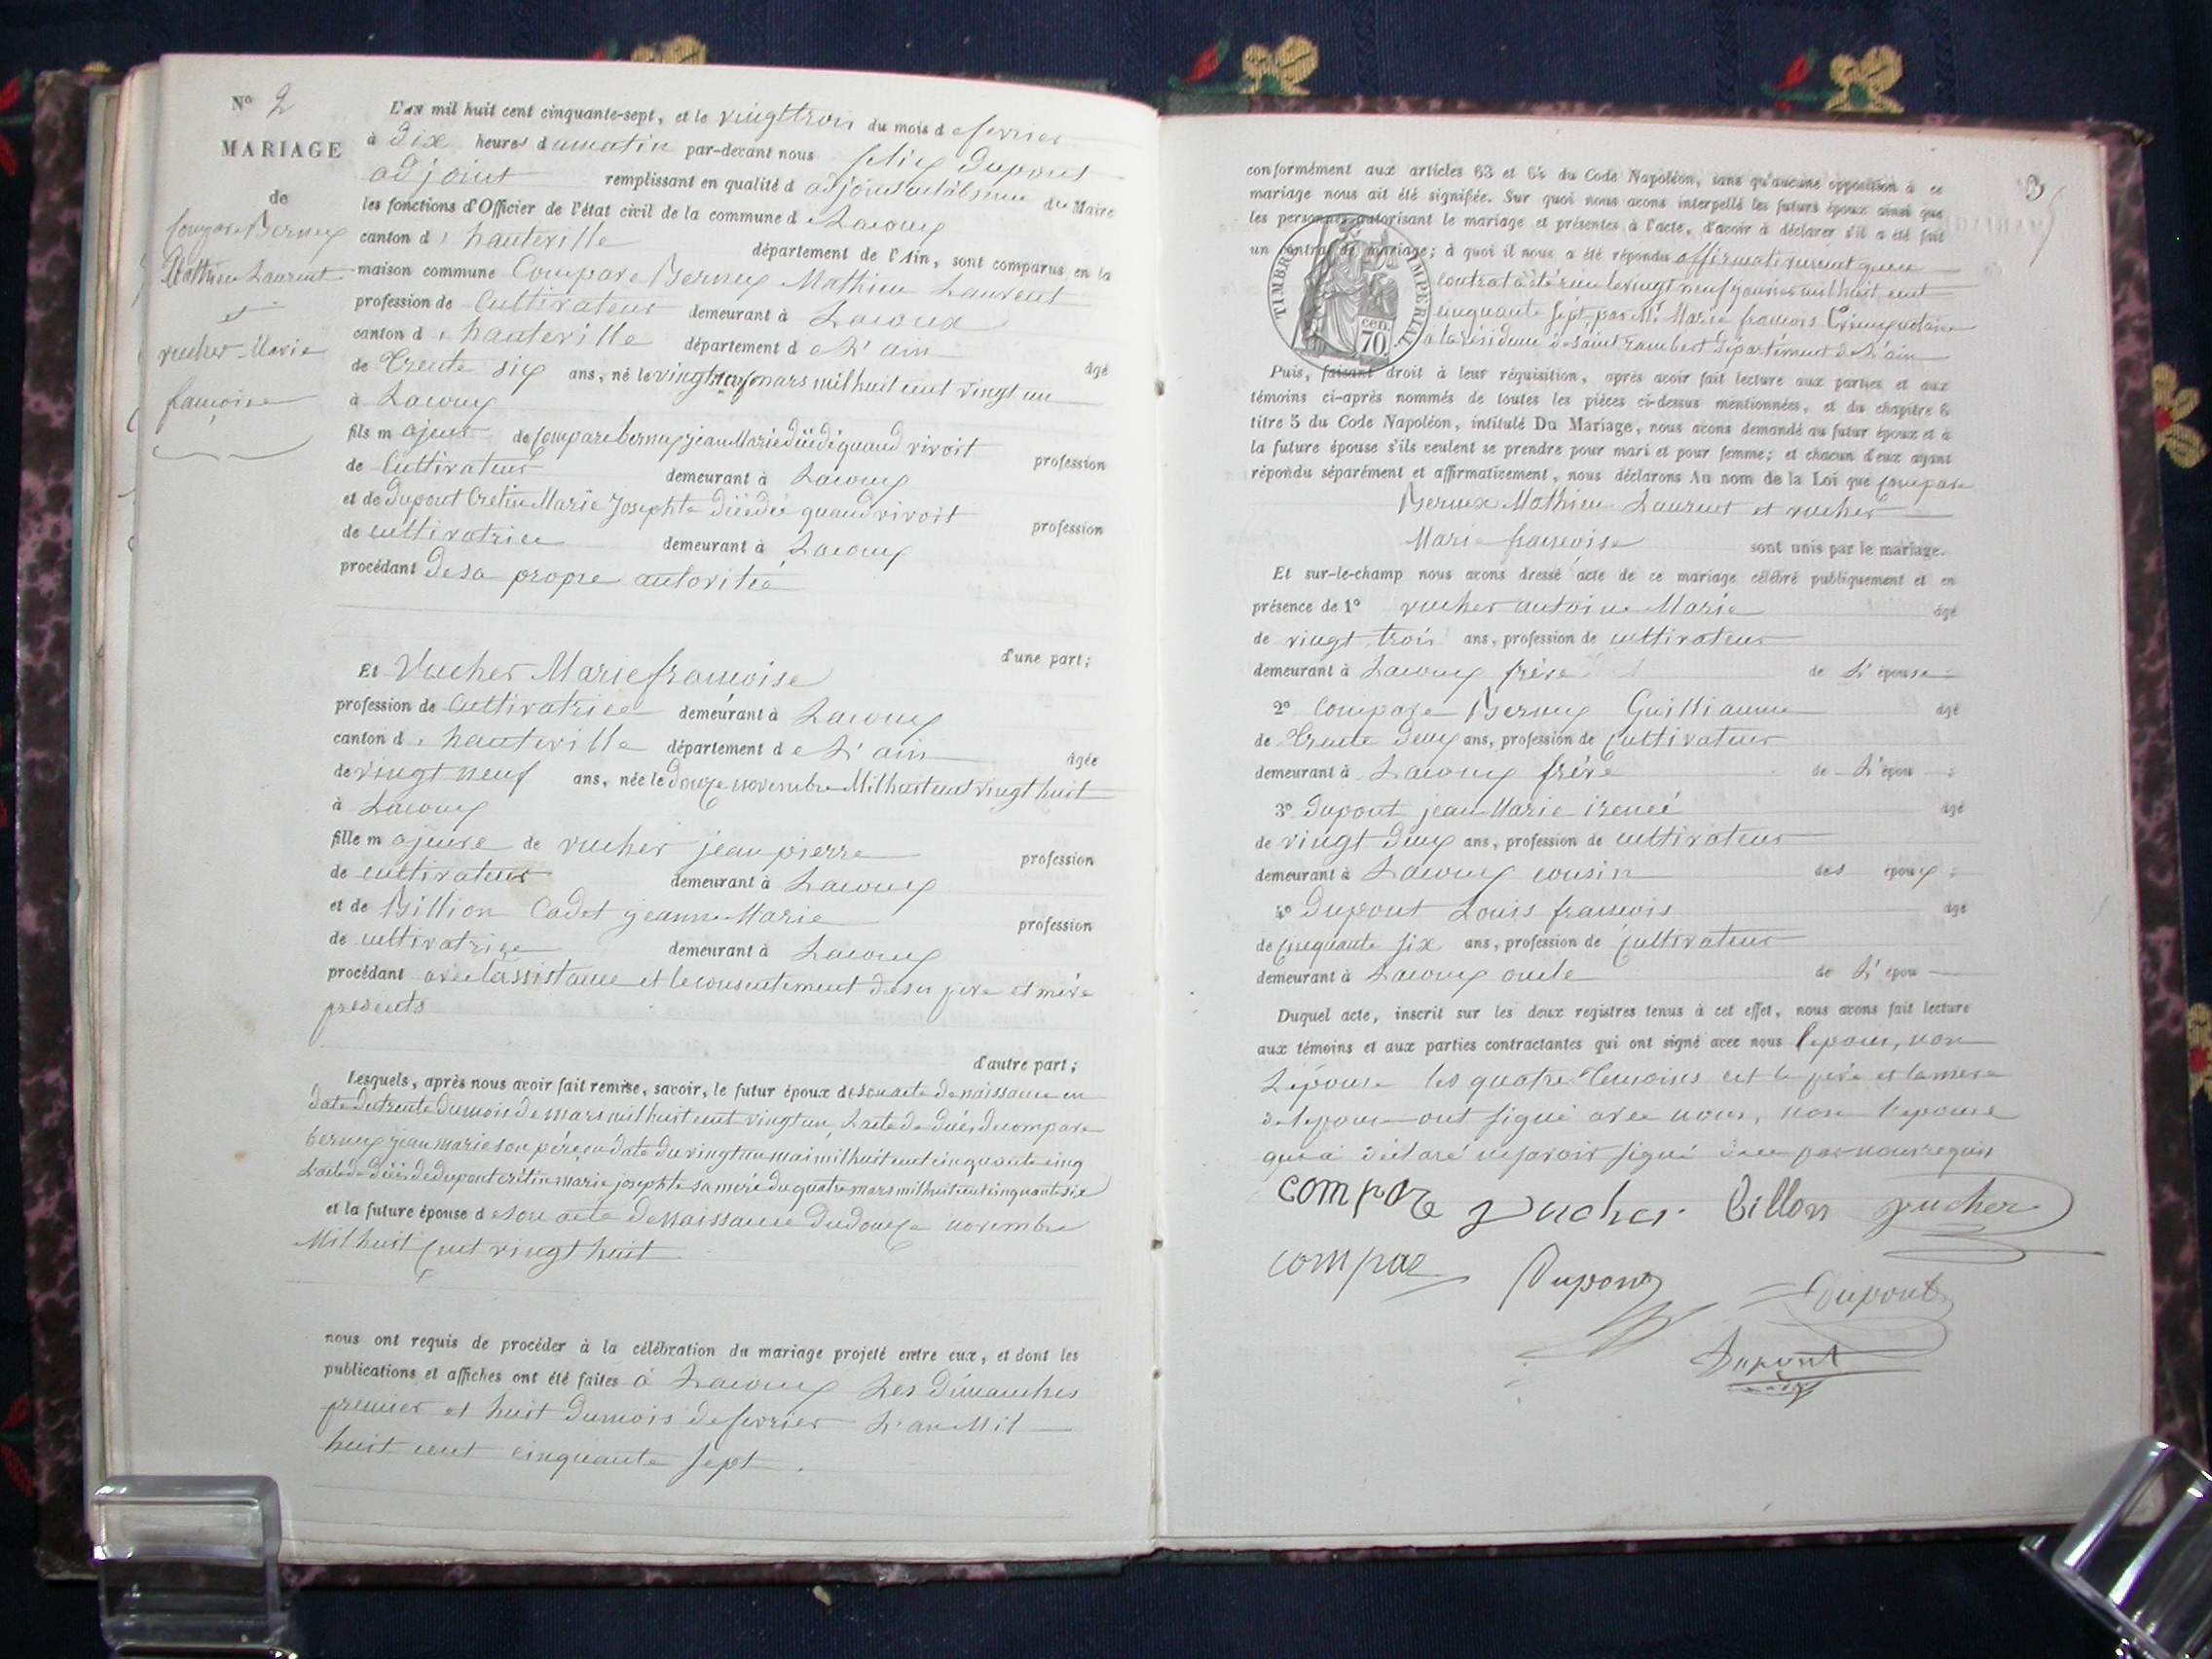 N° 2
MARIAGE
de
Compare Bernex
Mathieu Laurent
et
rucher Marie
francoise
L'an mil huit cent cinquante-sept, et le vingt trois du mois de fevrier
à Dix heures du matin par-devant nous felix Dupont
adjoint remplissant en qualité d adjoint du Maire
les fonctions d'Officier de l'état civil de la commune de Lacoux
canton de hauteville département de l'Ain, sont comparus en la
maison commune Compare Bernex Mathieu Laurent
profession de Cultivateur demeurant à Lacoux
canton de hauteville département de L'ain âgé
de Trente six ans, né le vingt neuf mars mil huit cent vingt un
à Lacoux
fils majeur de Compare bernex jean Marie quand vivoit profession
de Cultivateur demeurant à Lacoux
et de Dupont Cretin Marie Josephte quand vivoit profession
de cultivatrice demeurant à Lacoux
procédant de sa propre autorité
d'une part;
Et Rucher Marie francoise
profession de Cultivatrice demeurant à Lacoux
canton de hauteville département de L'ain âgée
de vingt neuf ans, née le Douze novembre Mil huit cent vingt huit
à Lacoux
fille majeure de rucher jean pierre profession
de cultivateur demeurant à Lacoux
et de Billion Cadet jeanne Marie profession
de cultivatrice demeurant à Lacoux
procédant avec l'assistance et le consentement de ses pere et mère
presents
d'autre part;
Lesquels, après nous avoir fait remise, savoir, le futur époux de son acte de naissance en
date du trente du mois de mars mil huit cent vingt un, L'acte de de compare
bernex jean marie son père en date du vingt un mai mil huit cent cinquante cinq
L'acte de de dupont crétin marie josephte sa mere du quatre mars mil huit cent cinquante six
et la future épouse de son acte de Naissance du douze novembre
Mil huit cent vingt huit
nous ont requis de procéder à la célébration du mariage projeté entre eux, et dont les
publications et affiches ont été faites à Lacoux Les Dimanches
premier et huit du mois de fevrier L'an Mil
huit cent cinquante sept.
3
conformément aux articles 63 et 64 du Code Napoléon, sans qu'aucune opposition à ce
mariage nous ait été signifiée. Sur quoi nous avons interpellé les futurs époux ainsi que
les personnes autorisant le mariage et présentes à l'acte, d'avoir à déclarer s'il a été fait
un contrat de mariage; à quoi il nous a été répondu affirmativement
contrat a été le vingt neuf janvier mil huit cent
cinquante sept par Mr Marie francois notaire
à la résidence de saint rambert département de L'ain
TIMBRE IMPERIAL
70 cen.
Puis, faisant droit à leur réquisition, après avoir fait lecture aux parties et aux
témoins ci-après nommés de toutes les pièces ci-dessus mentionnées, et du chapitre 6
titre 5 du Code Napoléon, intitulé Du Mariage, nous avons demandé au futur époux et à
la future épouse s'ils veulent se prendre pour mari et pour femme; et chacun d'eux ayant
répondu séparément et affirmativement, nous déclarons Au nom de la Loi que Compare
Bernex Mathieu Laurent et rucher
Marie francoise sont unis par le mariage.
Et sur-le-champ nous avons dressé acte de ce mariage célébré publiquement et en
présence de 1° rucher antoine Marie âgé
de vingt trois ans, profession de cultivateur
demeurant à Lacoux frère de L'épouse;
2° Compare Bernex Guilliaume âgé
de Trente Deux ans, profession de Cultivateur
demeurant à Lacoux frère de L'épou ;
3° Dupont jean Marie irenée âgé
de vingt Deux ans, profession de cultivateur
demeurant à Lacoux cousin des époux;
4° Dupont Louis francois âgé
de Cinquante six ans, profession de cultivateur
demeurant à Lacoux oncle de L'épou
Duquel acte, inscrit sur les deux registres tenus à cet effet, nous avons fait lecture
aux témoins et aux parties contractantes qui ont signé avec nous L'epoux, non
L'épouse les quatre temoins et le père et la mère
de l'epouse ont signé avec nous, non l'epouse
qui a déclaré ne savoir signé de ce par nous requis
compare rucher billon rucher
compare Dupont Dupont
Dupont
adj